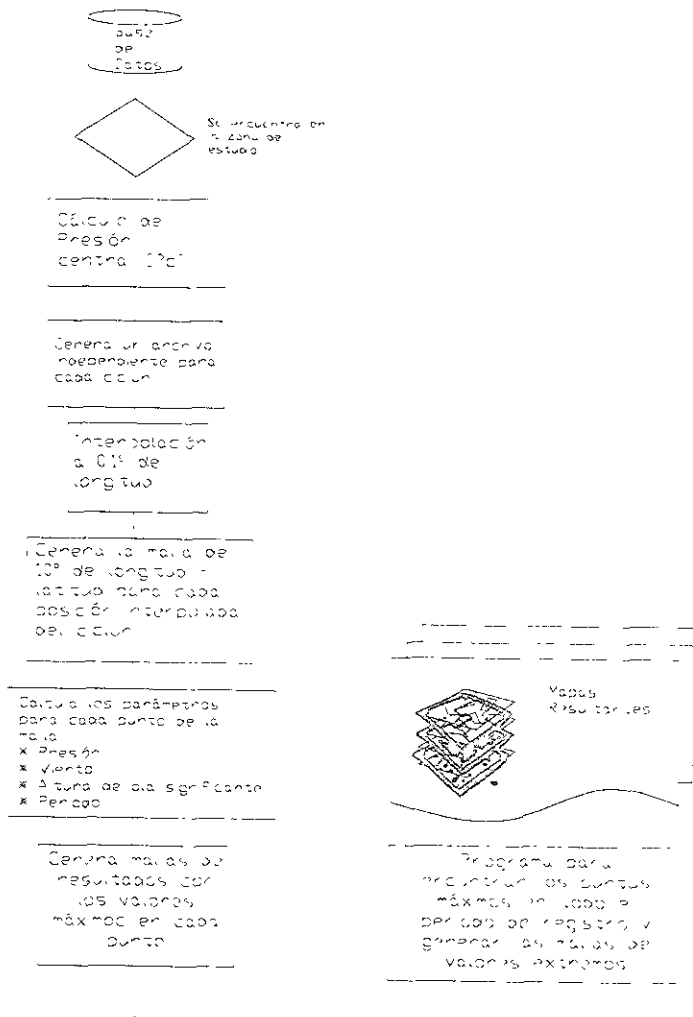 Base
de
Datos
Se encuentra en
la zona de
estudio
Cálculo de
Presión
central "Pc"
Genera un archivo
independiente para
cada ciclon
Interpolación
a 0.1° de
longitud
Genera la malla de
10° de longitud y
latitud para cada
posición interpolada
del ciclon
Calcula los parámetros
para cada punto de la
malla
* Presión
* Viento
* Altura de ola significante
* Periodo
Genera mallas de
resultados con
los valores
máximos en cada
punto
Mapas
Resultantes
Programa para
encontrar los puntos
máximos en todo el
periodo de registro y
generar las mallas de
valores extremos